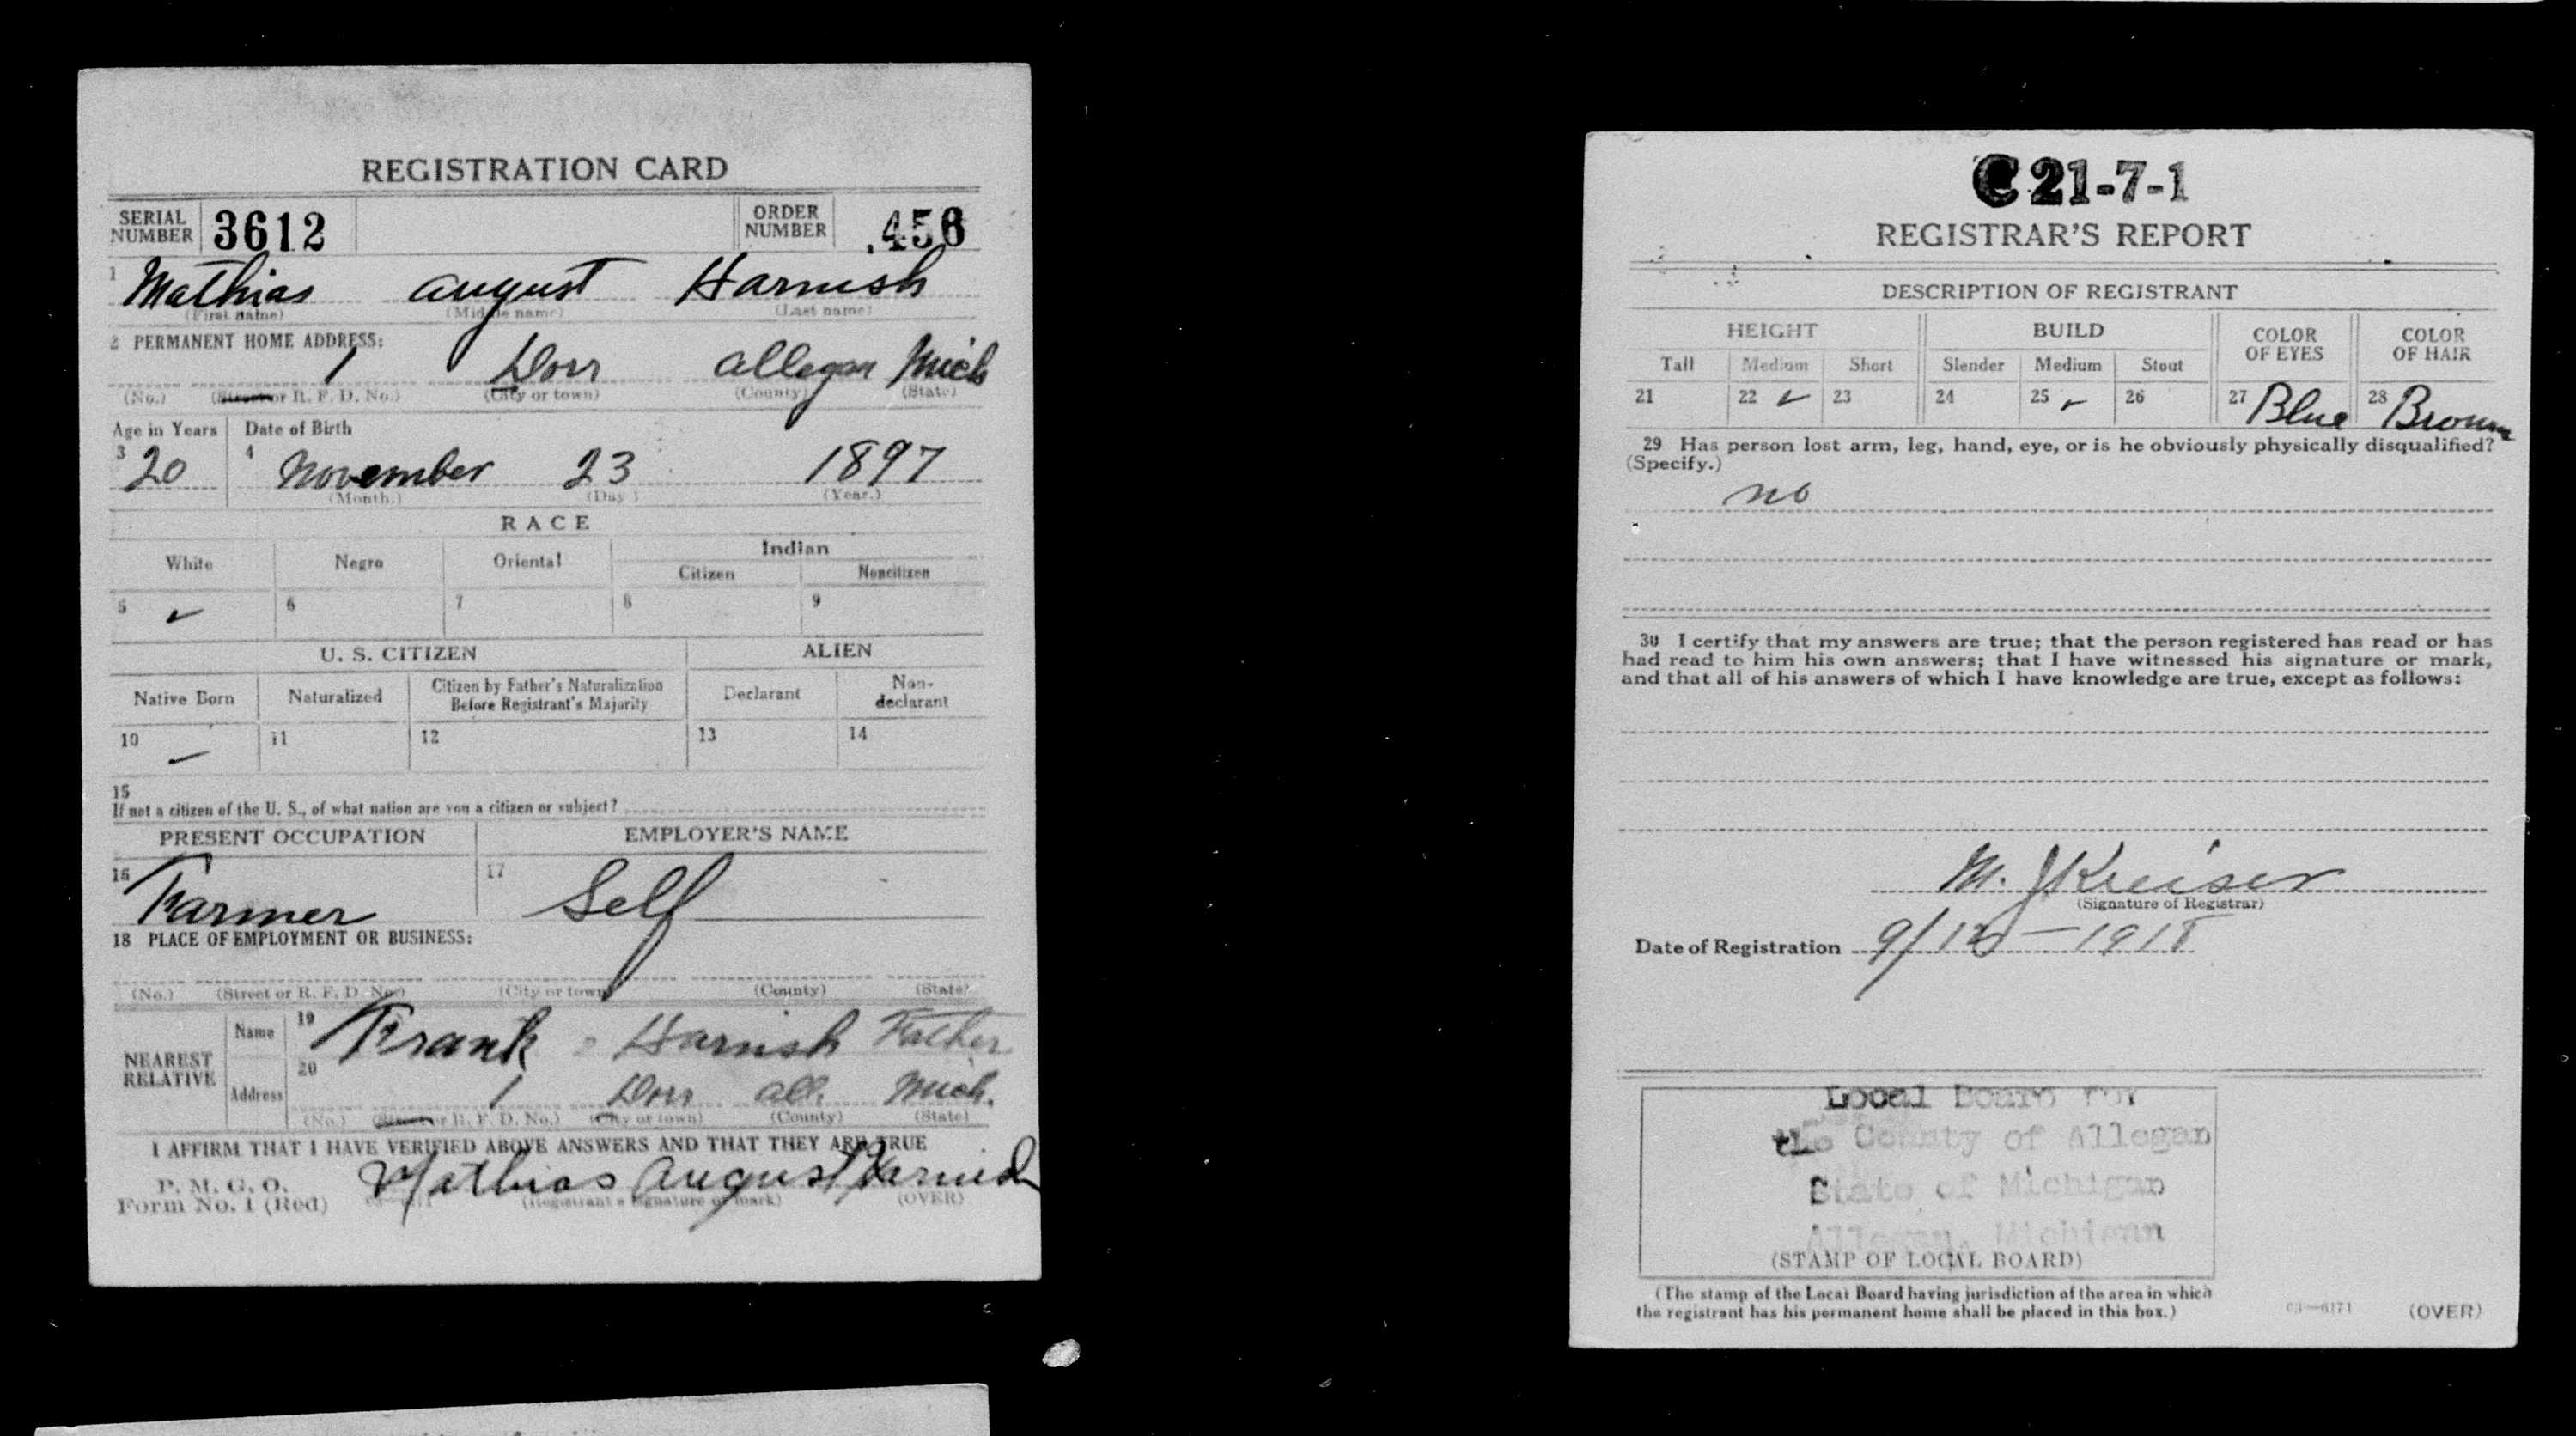 REGISTRATION CARD
SERIAL NUMBER 3612 ORDER NUMBER 456
1 Mathias August Harnish
(First name) (Middle name) (Last name)
2 PERMANENT HOME ADDRESS:
1 Dorr Allegan Mich
(No.) (Street or R. F. D. No.) (City or town) (County) (State)
Age in Years Date of Birth
3 20 4 November 23 1897
(Month.) (Day.) (Year.)
RACE
White Negro Oriental Indian
Citizen Noncitizen
5 ✓ 6 7 8 9
U. S. CITIZEN ALIEN
Native Born Naturalized Citizen by Father's Naturalization Before Registrant's Majority Declarant Non-declarant
10 ✓ 11 12 13 14
15
If not a citizen of the U. S., of what nation are you a citizen or subject?
PRESENT OCCUPATION EMPLOYER'S NAME
16 Farmer 17 Self
18 PLACE OF EMPLOYMENT OR BUSINESS:
(No.) (Street or R. F. D. No.) (City or town) (County) (State)
NEAREST RELATIVE
Name 19 Frank Harnish Father
Address 20 1 Dorr All. Mich.
(No.) (Street or R. F. D. No.) (City or town) (County) (State)
I AFFIRM THAT I HAVE VERIFIED ABOVE ANSWERS AND THAT THEY ARE TRUE
P. M. G. O.
Form No. 1 (Red) Mathias August Harnish
(Registrant's signature or mark) (OVER)
C 21-7-1
REGISTRAR'S REPORT
DESCRIPTION OF REGISTRANT
HEIGHT BUILD COLOR OF EYES COLOR OF HAIR
Tall Medium Short Slender Medium Stout
21 22 ✓ 23 24 25 ✓ 26 27 Blue 28 Brown
29 Has person lost arm, leg, hand, eye, or is he obviously physically disqualified?
(Specify.)
no
30 I certify that my answers are true; that the person registered has read or has
had read to him his own answers; that I have witnessed his signature or mark,
and that all of his answers of which I have knowledge are true, except as follows:
M. J Kreiser
(Signature of Registrar)
Date of Registration 9/12-1918
Local Board for
the County of Allegan
State of Michigan
Allegan, Michigan
(STAMP OF LOCAL BOARD)
(The stamp of the Local Board having jurisdiction of the area in which
the registrant has his permanent home shall be placed in this box.)
03—6171 (OVER)